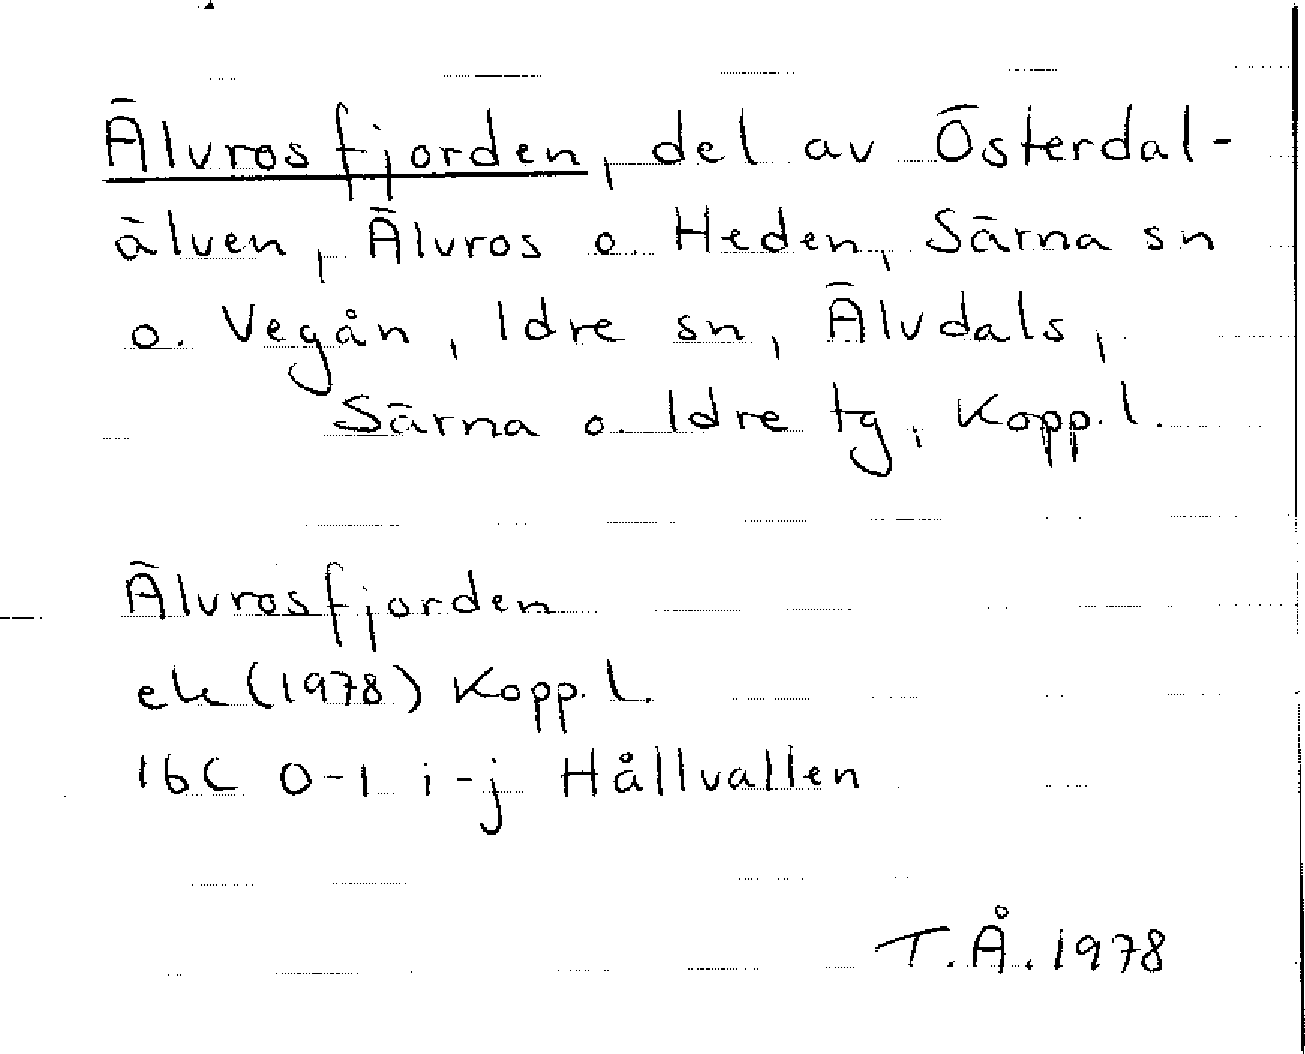 Älvrosfjorden, del av Österdal-
älven, Älvros o. Heden, Särna sn
o. Vegån, Idre sn, Älvdals,
Särna o. Idre tg, Kopp. l.
Älvrosfjorden
ek (1978) Kopp. l.
16C 0-1 i-j Hållvallen
T.Å. 1978